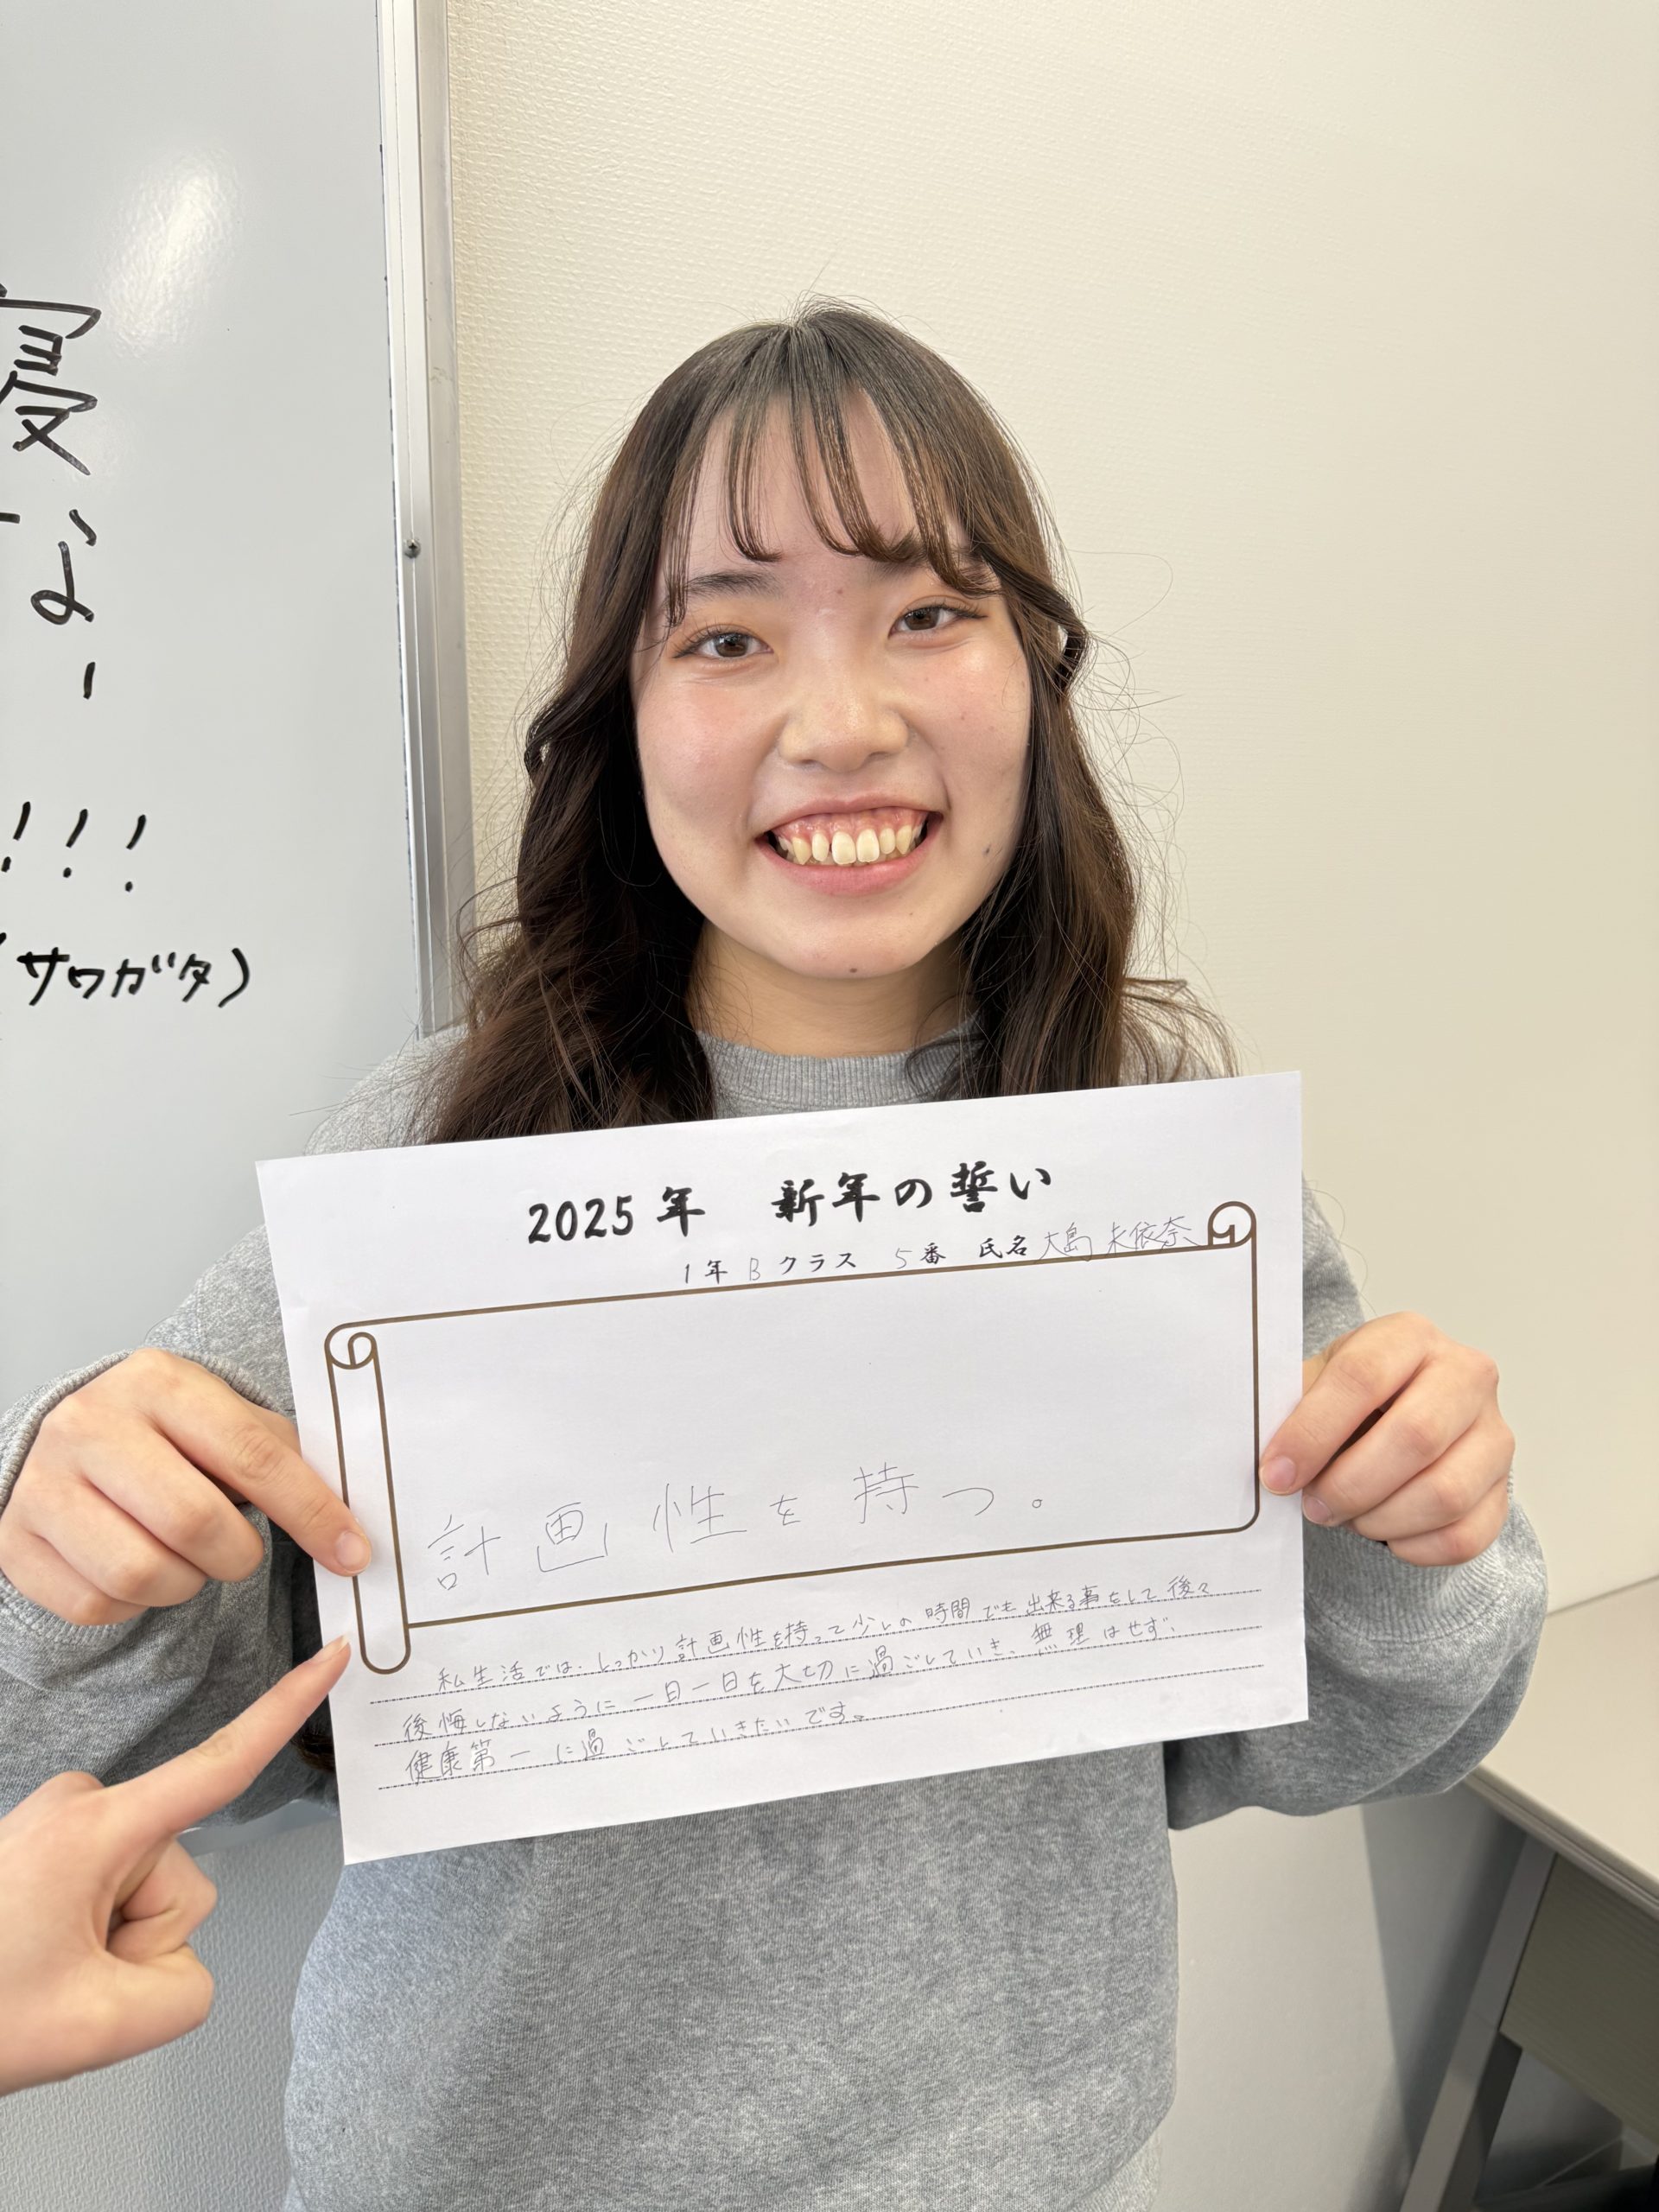 寝
な
!!!
(サワガタ)
2025年 新年の誓い
1年 Bクラス 5番 氏名 大島 未依奈
計画性を持つ。
私生活では、しっかり計画性を持って少しの時間でも出来る事をして後々
後悔しないように一日一日を大切に過ごしていき、無理はせず、
健康第一に過ごしていきたいです。